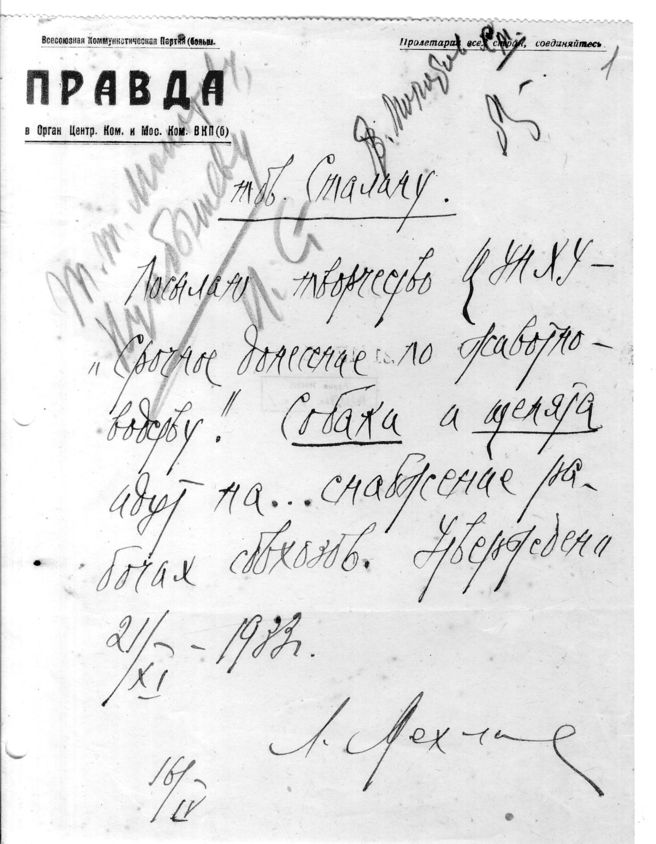 Всесоюзная Коммунистическая Партия (больш.
Пролетарии всех стран, соединяйтесь
1
ПРАВДА
в Орган Центр. Ком. и Мос. Ком. ВКП(б)
т.т. Молотову,
Куйбышеву
И. Ст
тов. Сталину.
Посылаю творчество ЦУНХУ –
„Срочное донесение по животно–
водству". Собаки и щенята
идут на... снабжение ра-
бочих совхозов. Утверждена
21/XI – 1933г.
Л. Мехлис
16/IV